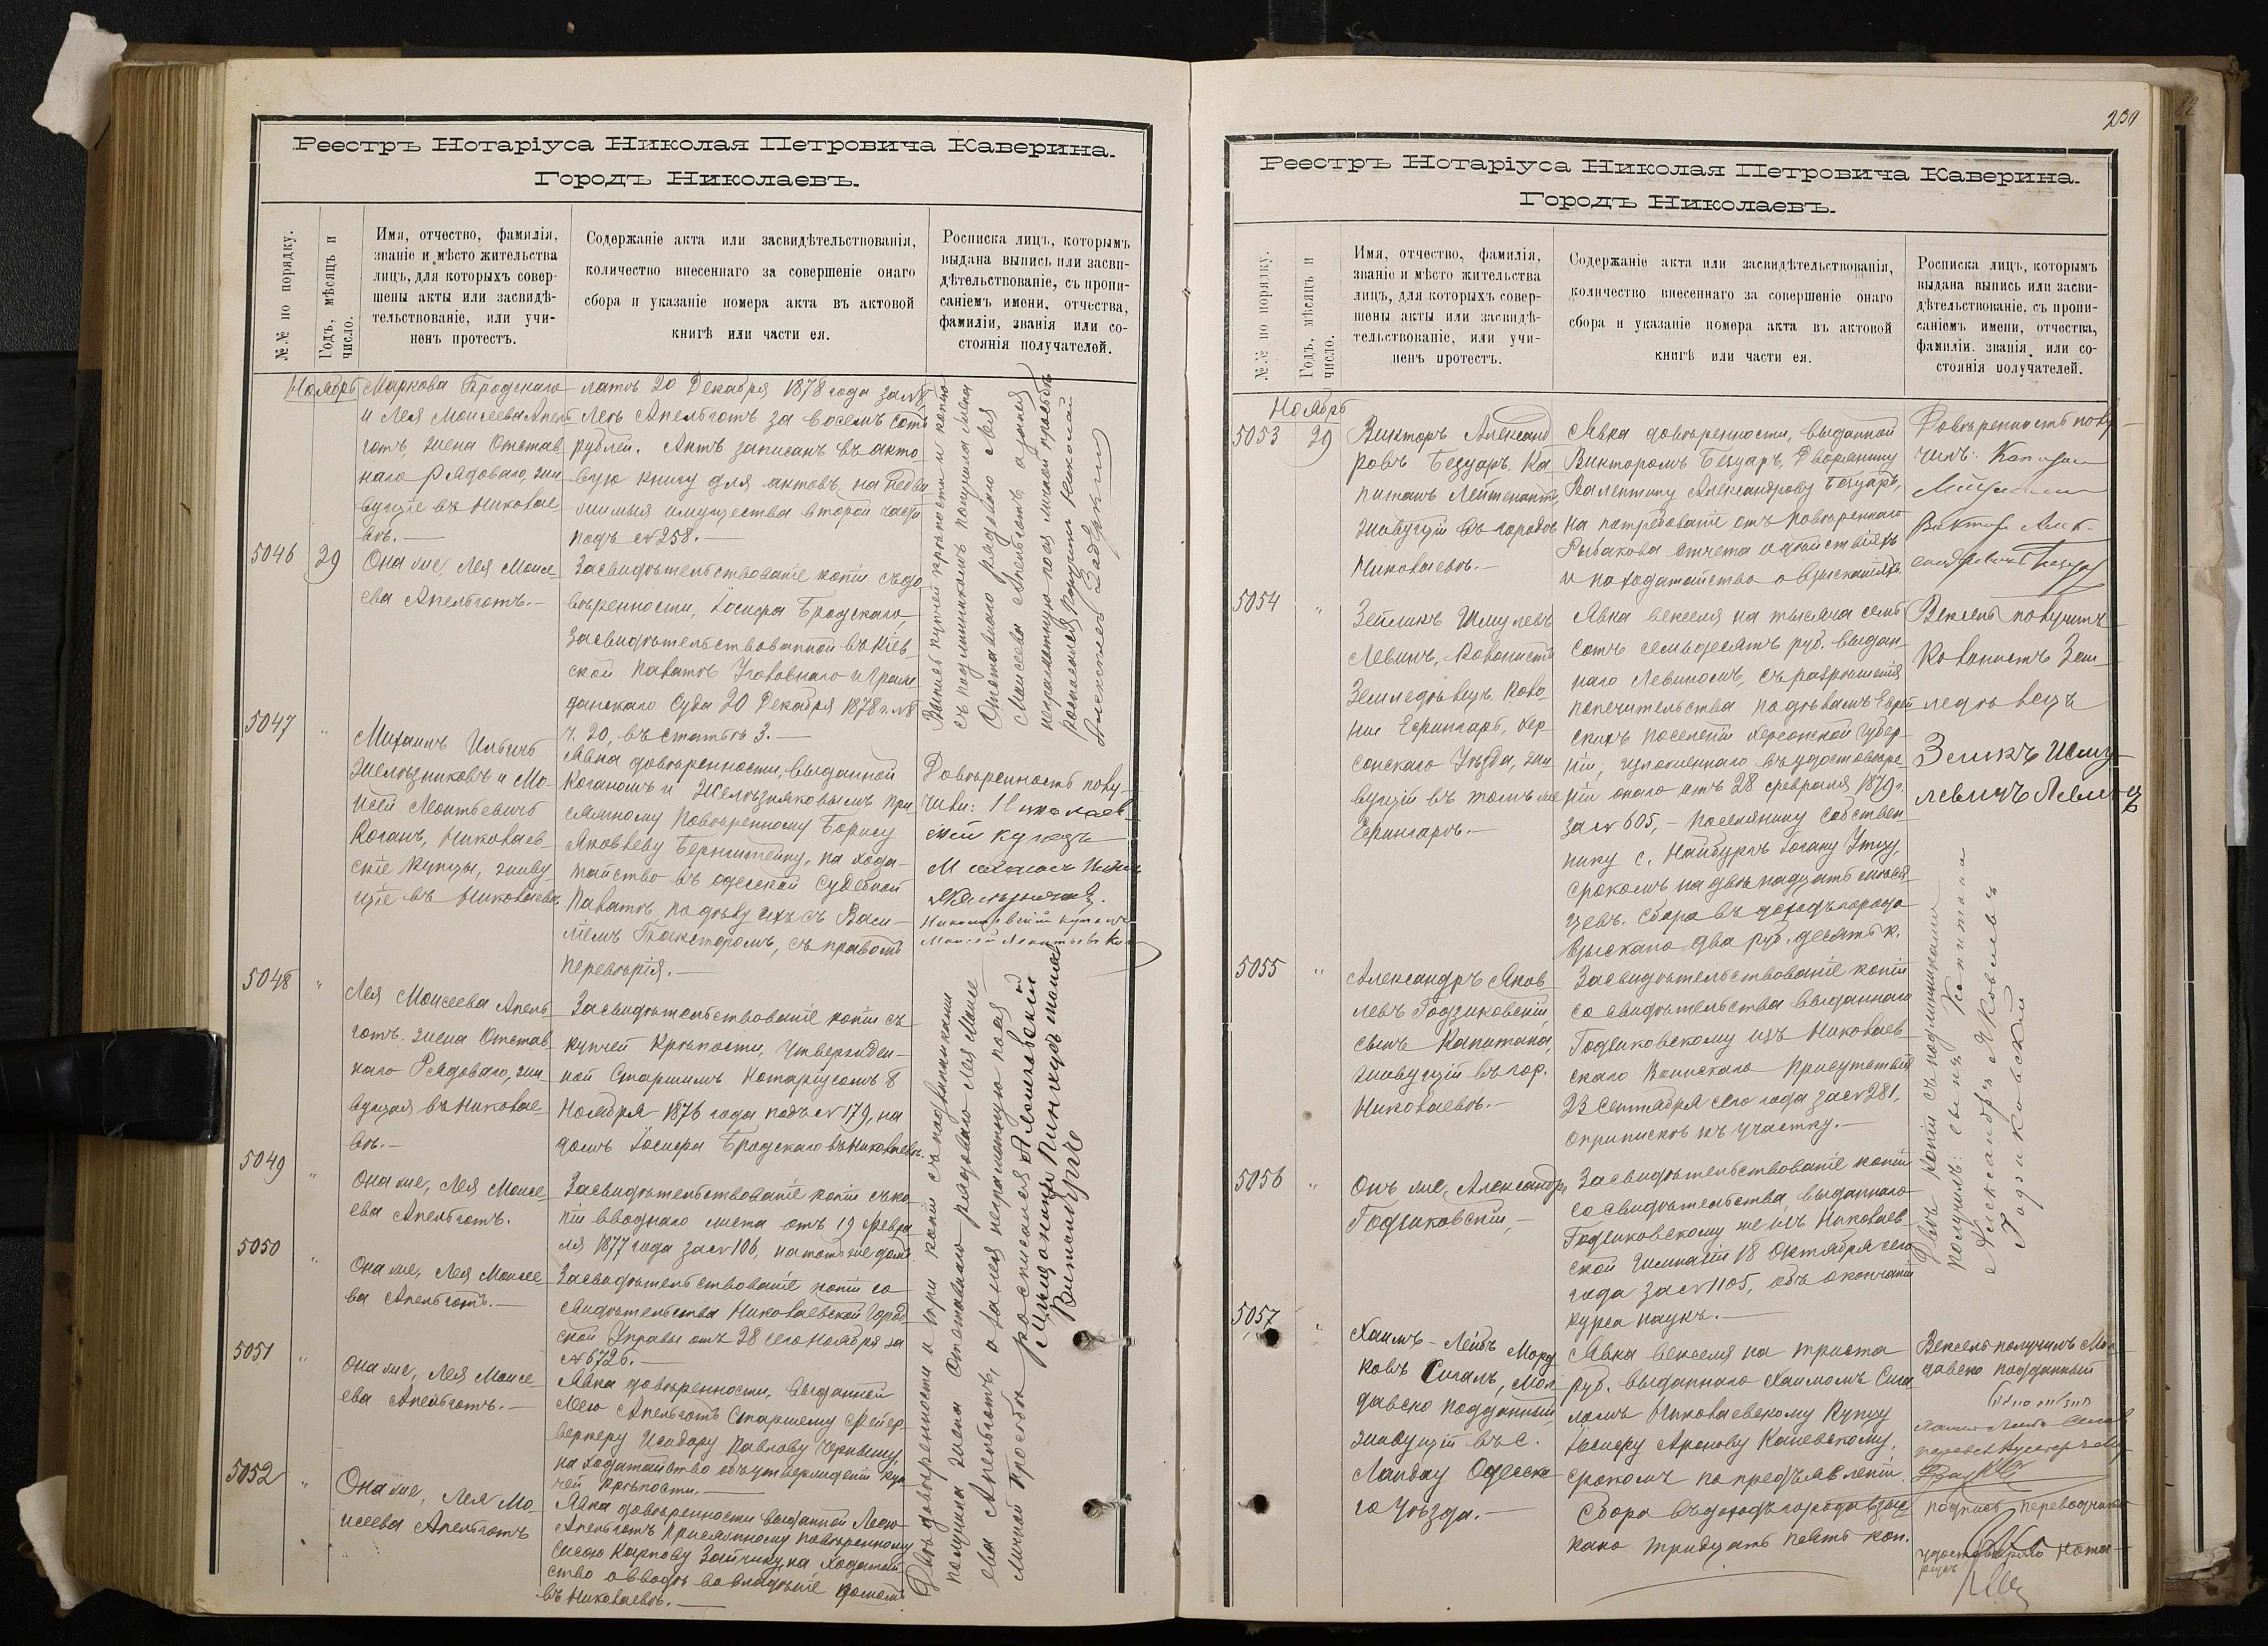 Реестръ Нотаріуса Николая Петровича Каверина.
Городъ Николаевъ.
№№ по порядку.
Годъ, мѣсяцъ и
число.
Имя, отчество, фамилія,
званіе и мѣсто жительства
лицъ, для которыхъ совер-
шены акты или засвидѣ-
тельствованіе, или учи-
ненъ протестъ.
Содержаніе акта или засвидѣтельствованія,
количество внесеннаго за совершеніе онаго
сбора и указаніе номера акта въ актовой
книгѣ или части ея.
Росписка лицъ, которымъ
выдана выпись или засви-
дѣтельствованіе, съ пропи-
саніемъ имени, отчества,
фамиліи, званія или со-
стоянія получателей.
Ноябрь
Маркова Бродскаго
и Лея Моисеева Апель
готъ, жена Отстав
наго рядоваго, жи
вущіе въ Николае-
вѣ.—
латѣ 20 Декабря 1878 года за №8
Леѣ Апельготъ за восемь сотъ
рублей. Актъ записанъ въ акто-
вую книгу для актовъ на недви
жимыя имущества второй части
подъ №258.—
5046
29
Она же, Лея Моисе-
ева Апельготъ.—
Засвидѣтельствованіе копіи съ до
вѣренности, Іосифа Бродскаго,
засвидѣтельствованной въ Кіев-
ской Палатѣ Уголовнаго и Граж
данскаго Суда 20 Декабря 1878 г. №8
ч. 20, въ статьѣ 3.—
Выпись купчей крѣпости и копію
съ подлинникомъ получила жена
Отставнаго рядоваго Лея
Моисеева Апельготъ, а за нея
неграмотную по ея личной просьбѣ
росписался Николай
Алексѣевъ
5047
"
Михаилъ Ильичъ
Желѣзняковъ и Мо-
исей Леонтьевичъ
Коганъ, Николаев-
скіе Купцы, живу
щіе въ Николаевѣ.
Явка довѣренности, выданной
Коганомъ и Желѣзняковымъ При
сяжному Повѣренному Борису
Яковлеву Бернштейну, на хода-
тайство въ Одесской Судебной
Палатѣ, по дѣлу ихъ съ Васи-
ліемъ Бакстеромъ, съ правомъ
перевѣрія.—
Довѣренность полу-
чили: Николаев
скій купецъ
Михаилъ Ильичъ
Желѣзняковъ.
Николаевскій купецъ
Моисей Леонтьевъ Коганъ
5048
"
Лея Моисеева Апель
готъ, жена Отстав
наго Рядоваго, жи
вущая въ Николае-
вѣ.—
Засвидѣтельствованіе копіи съ
купчей Крѣпости, утвержден-
ной Старшимъ Нотаріусомъ 8
Ноября 1876 года подъ №179, на
домъ Іосифа Бродскаго въ Николаевѣ.
5049
"
Она же, Лея Моисе
ева Апельготъ.
Засвидѣтельствованіе копіи съ ко
піи вводнаго листа отъ 19 Февра
ля 1877 года за №106, на тотъ же домъ.
5050
"
Она же, Лея Моисее-
ва Апельготъ.—
Засвидѣтельствованіе копіи со
свидѣтельства Николаевской Город
ской Управы отъ 28 сего Ноября за
№6726.—
5051
"
Она же, Лея Моисе
ева Апельготъ.—
Явка довѣренности, выданной
Леею Апельготъ Старшему Фейер-
веркеру Исидору Павлову Чернышу
на ходатайство объ утвержденіи куп
чей крѣпости.—
5052
"
Она же, Лея Мо-
исеева Апельготъ
Явка довѣренности выданной Леею
Апельготъ Присяжному Повѣренному
Сысою Карпову Зайчику, на ходатай-
ство о вводѣ во владѣніе домомъ
въ Николаевѣ.—
Двѣ довѣренности и три копіи съ подлинниками
получила жена Отставнаго рядоваго Лея Моисе
ева Апельготъ, а за нея неграмотную по ея
личной просьбѣ росписался
Мѣщанинъ Пинкусъ
230
Реестръ Нотаріуса Николая Петровича Каверина.
Городъ Николаевъ.
№№ по порядку.
Годъ, мѣсяцъ и
число.
Имя, отчество, фамилія,
званіе и мѣсто жительства
лицъ, для которыхъ совер-
шены акты или засвидѣ-
тельствованіе, или учи-
ненъ протестъ.
Содержаніе акта или засвидѣтельствованія,
количество внесеннаго за совершеніе онаго
сбора и указаніе номера акта въ актовой
книгѣ или части ея.
Росписка лицъ, которымъ
выдана выпись или засви-
дѣтельствованіе, съ пропи-
саніемъ имени, отчества,
фамиліи, званія, или со-
стоянія получателей.
Ноябрь
5053
29
Викторъ Александ
ровъ Безуаръ, Ка
питанъ Лейтенантъ,
живущій въ городѣ
Николаевѣ.—
Явка довѣренности, выданной
Викторомъ Безуаръ, Дворянину
Валентину Александрову Безуаръ,
на потребованіе отъ повѣреннаго
Рыбакова отчета о дѣйствіяхъ
и на ходатайство о взысканіяхъ.
Довѣренность полу-
чилъ: Капитанъ
Лейтенантъ
Викторъ Алек-
сандровичъ Безуаръ
5054
"
Зейликъ Шмулевъ
Левинъ, Колонистъ
Земледѣлецъ, Коло-
ніи Ефингаръ, Хер-
сонскаго Уѣзда, жи
вущій въ томъ же
Ефингарѣ.—
Явка векселя на тысяча семь
сотъ семьдесятъ руб. выдан-
наго Левинымъ, съ разрѣшенія
попечительства по дѣламъ Еврей
скихъ поселеній Херсонской Губер-
ніи, изложеннаго въ удостовѣре
ніи онаго отъ 28 февраля 1879 г.
за №605,— Поселянину Собствен-
нику с. Найбургъ Іогану Утцу,
срокомъ на двѣнадцать мѣся-
цевъ. Сбора въ доходъ города
взыскано два руб. десять к.
Вексель получилъ
Колонистъ Зем-
ледѣлецъ
Зеликъ Шму-
левичъ Левинъ
5055
"
Александръ Яков
левъ Годзиковскій
сынъ Капитана,
живущій въ гор.
Николаевѣ.—
Засвидѣтельствованіе копіи
со свидѣтельства выданнаго
Годзиковскому изъ Николаев-
скаго Воинскаго Присутствія
23 Сентября сего года за №281,
о припискѣ къ участку.—
5056
"
Онъ же, Александръ
Годзиковскій,—
Засвидѣтельствованіе копіи
со свидѣтельства, выданнаго
Годзиковскому же изъ Николаев-
ской Гимназіи 18 Октября сего
года за №1105, объ окончаніи
курса наукъ.—
Двѣ копіи съ подлинниками
получилъ: сынъ Капитана
Александръ Яковлевъ
Годзиковскій
5057
"
Хаимъ-Лейбъ Морд
ковъ Сигалъ, Мол
давско подданный,
живущій въ с.
Ландау Одесска
го Уѣзда.—
Явка векселя на триста
руб. выданнаго Хаимомъ Сига
ломъ Николаевскому Купцу
Іосифу Аронову Каневскому,
срокомъ по предъявленіи.
Сбора въ доходъ города взыс
кано тридцать пять коп.
Вексель получилъ Мол-
давско подданный
подпись переводчика
удостовѣряю Нота-
ріусъ